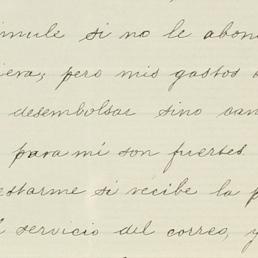 imule si no le abon
iera; pero mis gastos
desembolsar sino can
para mí son fuertes.
estarme si recibe la p
l servicio del correo, y